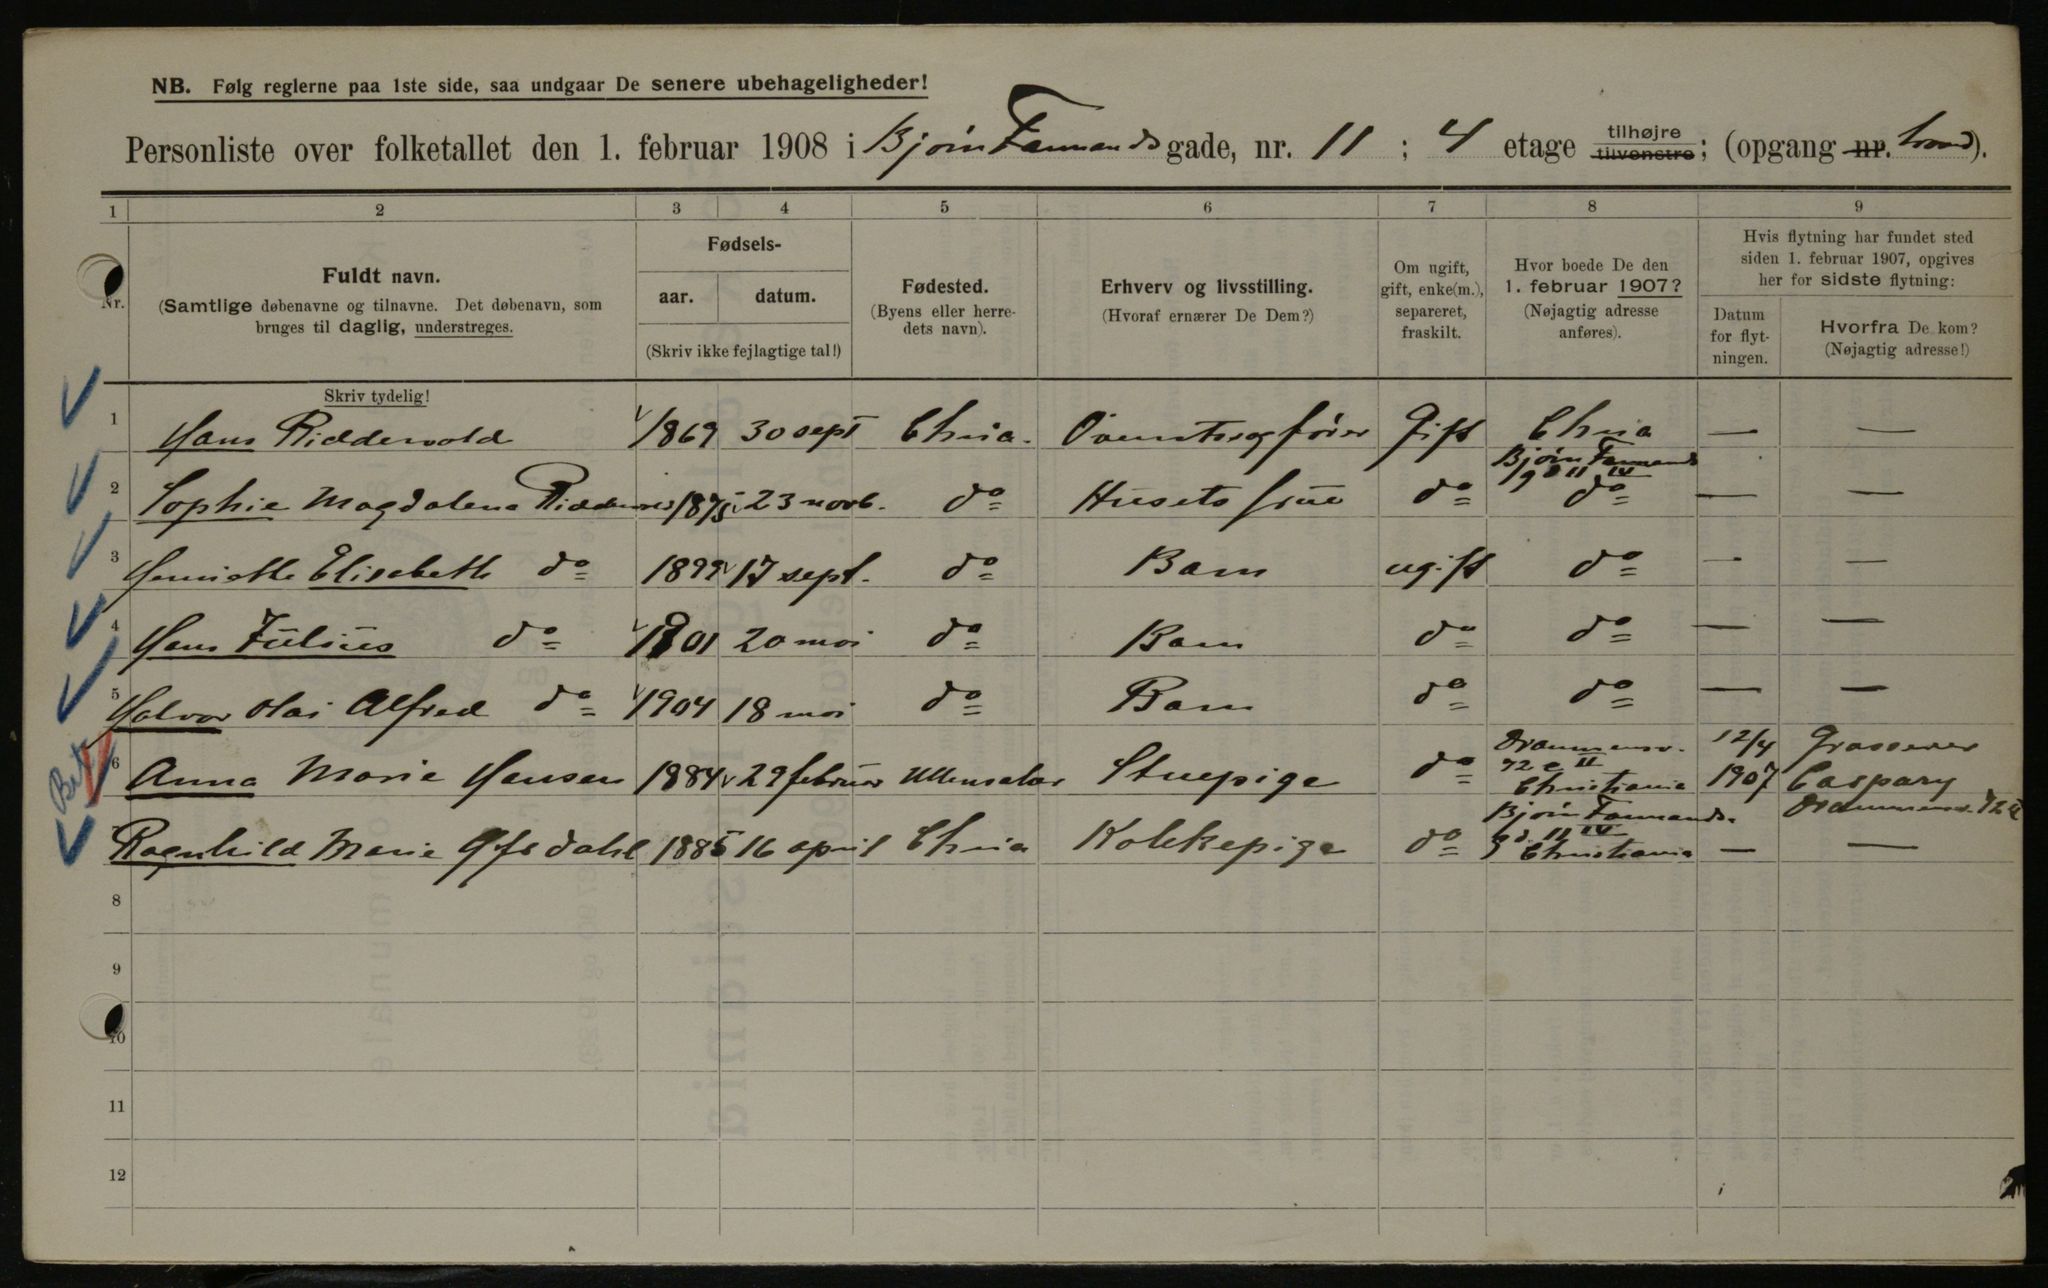 NB. Følg reglerne paa 1ste side, saa undgaar De senere ubehageligheder!
Personliste over folketallet den 1. februar 1908 i Bjørn Farmands gade, nr. 11 ; 4 etage tilhøjre tilvenstre; (opgang nr. ).
1 2 3 4 5 6 7 8 9
Nr.
Fuldt navn.
(Samtlige døbenavne og tilnavne. Det døbenavn, som
bruges til daglig, understreges.
Fødsels-
aar. datum.
(Skriv ikke fejlagtige tal!)
Fødested.
(Byens eller herre-
dets navn).
Erhverv og livsstilling.
(Hvoraf ernærer De Dem?)
Om ugift,
gift, enke(m.),
separeret,
fraskilt.
Hvor boede De den
1. februar 1907?
(Nøjagtig adresse
anføres).
Hvis flytning har fundet sted
siden 1. februar 1907, opgives
her for sidste flytning:
Datum
for flyt-
ningen.
Hvorfra De kom?
(Nøjagtig adresse!)
Skriv tydelig!
1 Hans Riddervold 1869 30 sept Chria. Overretssagfører Gift Chria — —
Bjørn Farmands
gd 11 IV
2 Sophie Magdalena Riddervold 1875 23 novb. do Husets frue do do — —
3 Henriette Elisabeth do 1899 17 sept. do Barn ugift do — —
4 Hans Julius do 1901 20 mai do Barn do do — —
5 Halvor Olai Alfred do 1904 18 mai do Barn do do — —
6 Anna Marie Hansen 1884 29 februar Ullensaker Stuepige do Drammensv.
92 c II
Christiania
12/4
1907
Grosserer
Caspary
Drammensv. 72
Ragnhild Marie Ofsdahl 1885 16 april Chria Kokkepige do Bjørn Farmands-
gd. 11 IV
Christiania — —
8
9
10
11
12